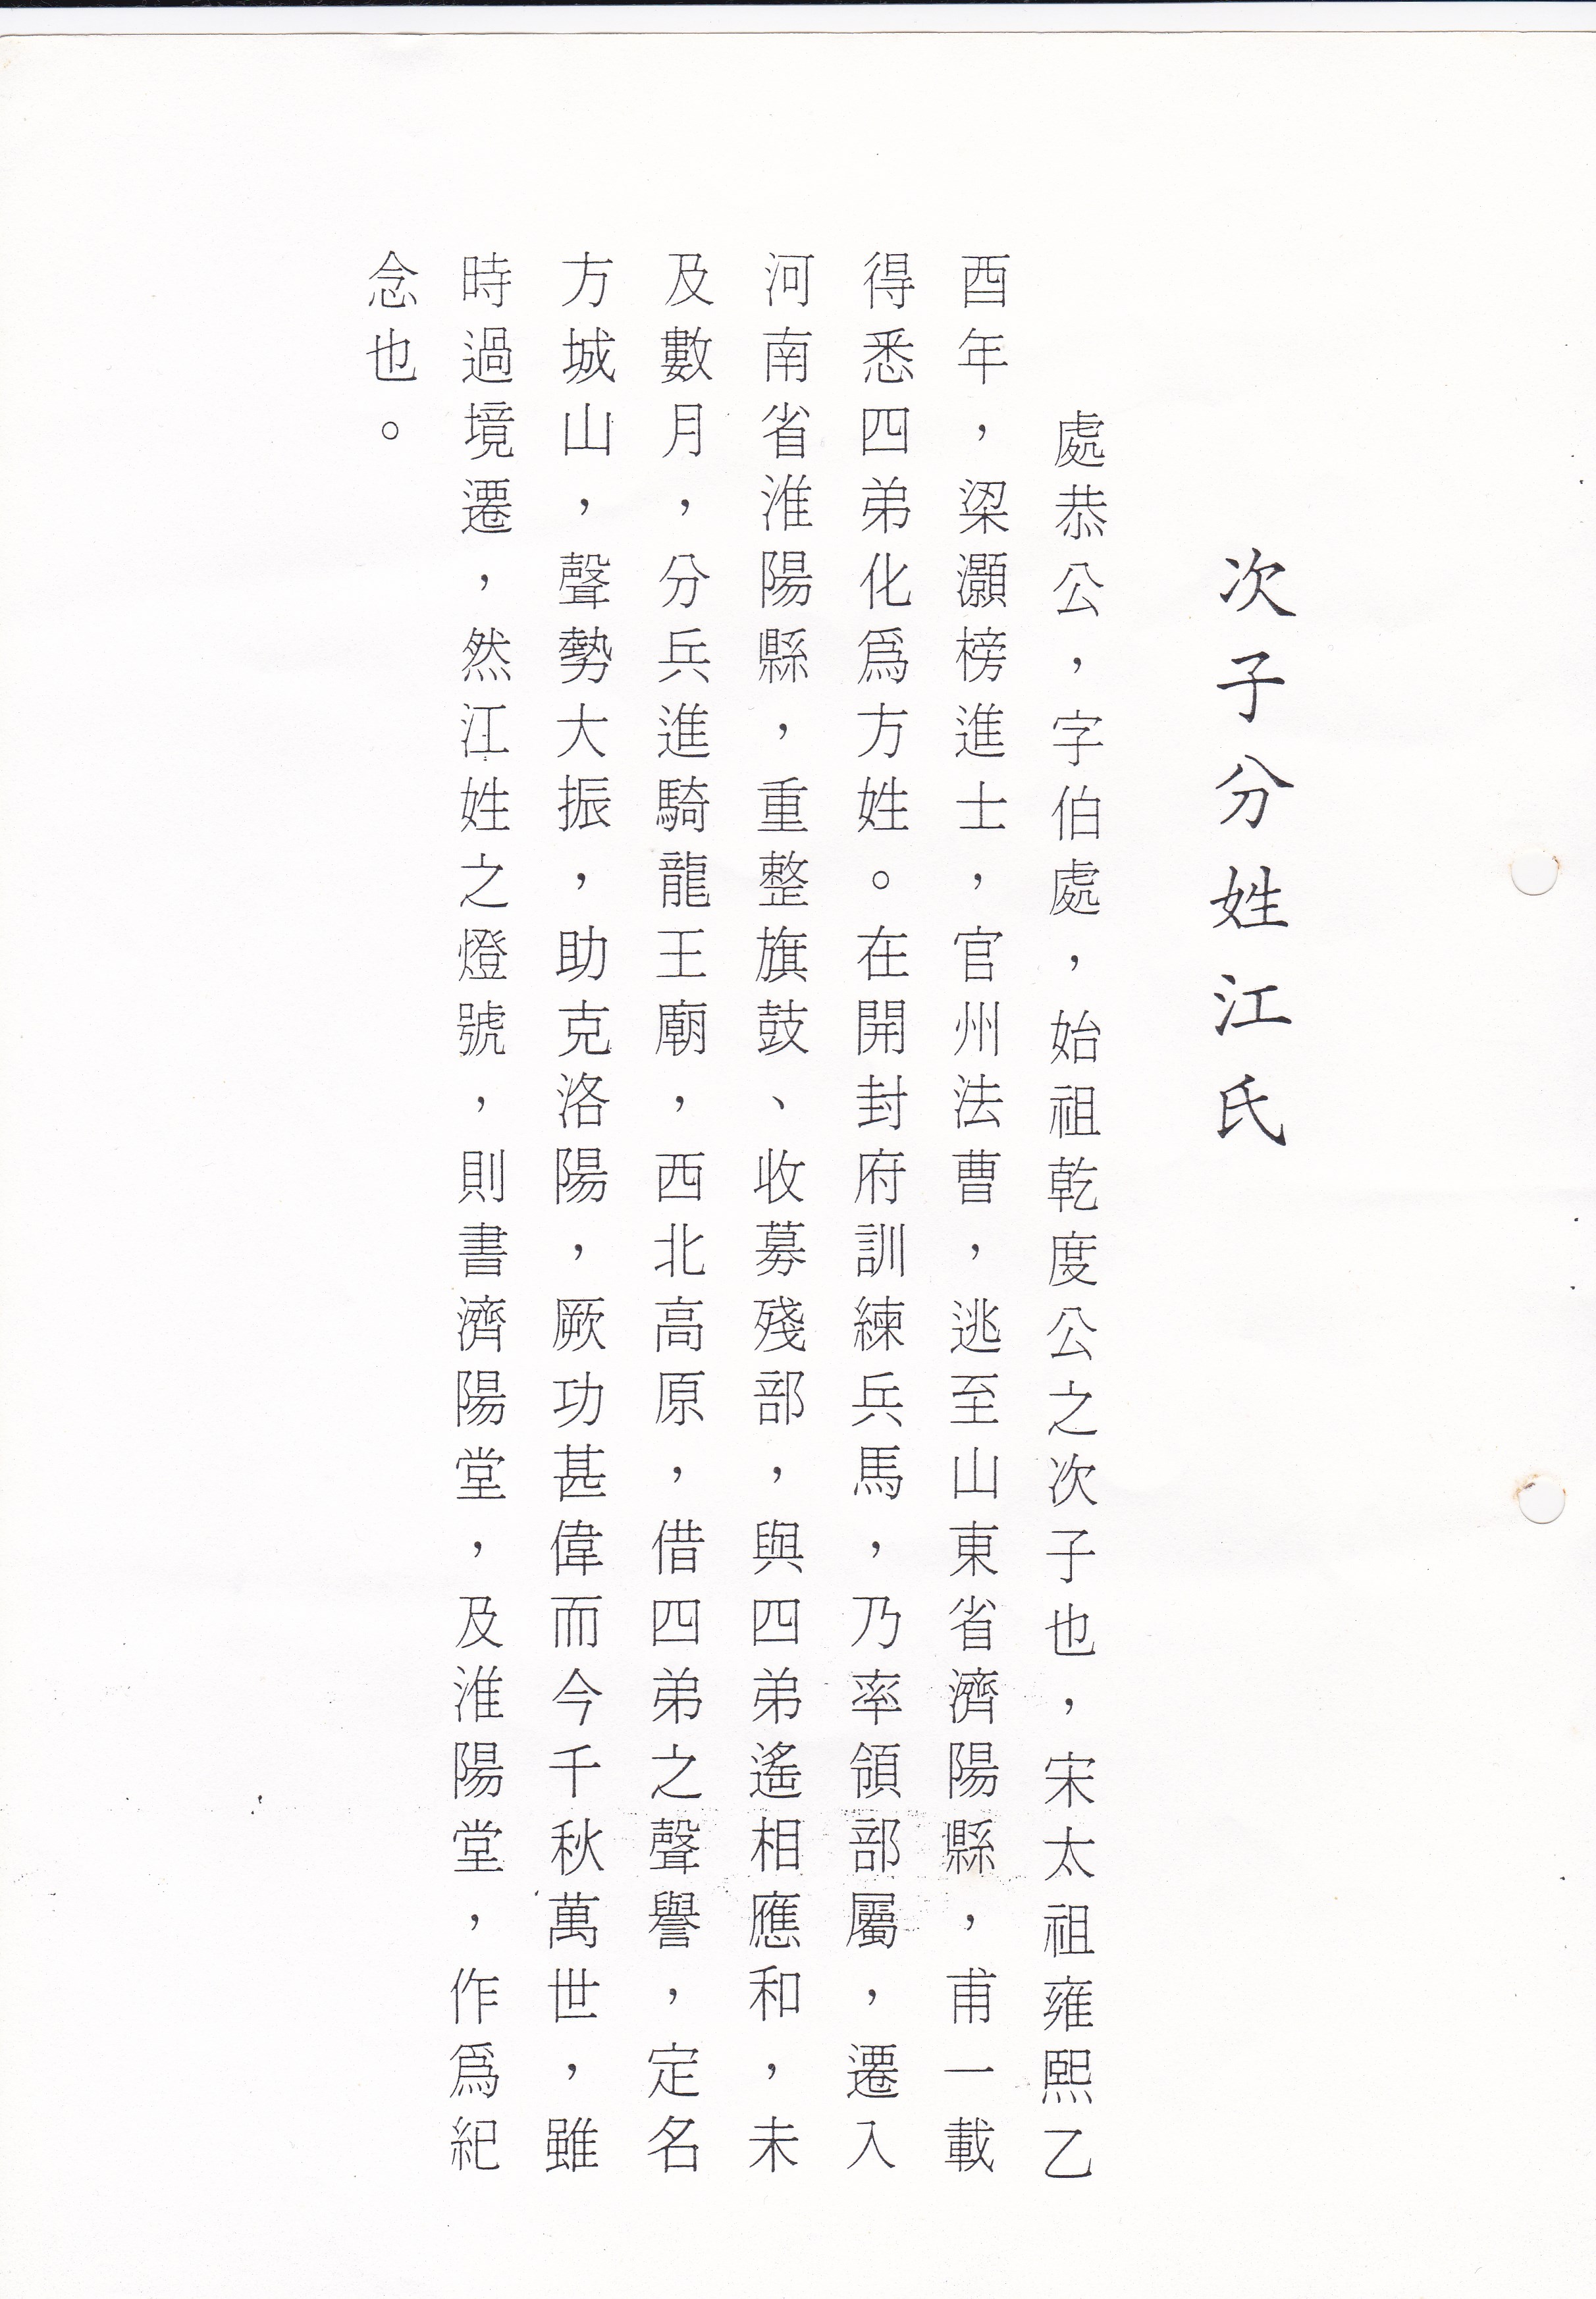 次子分姓江氏
處恭公，字伯處，始祖乾度公之次子也，宋太祖雍熙乙
酉年，梁灝榜進士，官州法曹，逃至山東省濟陽縣，甫一載
得悉四弟化爲方姓。在開封府訓練兵馬，乃率領部屬，遷入
河南省淮陽縣，重整旗鼓、收募殘部，與四弟遙相應和，未
及數月，分兵進騎龍王廟，西北高原，借四弟之聲譽，定名
方城山，聲勢大振，助克洛陽，厥功甚偉而今千秋萬世，雖
時過境遷，然江姓之燈號，則書濟陽堂，及淮陽堂，作爲紀
念也。